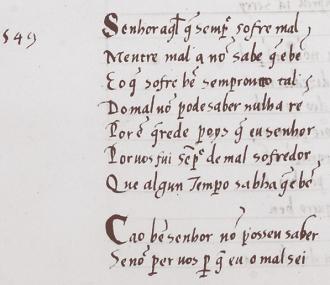 549
Senhor aql̃ q̃ semp̃ sofre mal
Mentre mal a nõ sabe q̃ e bẽ
E o q̃ sofre bẽ sempr outro tal
Do mal nõ pode saber nulha re
Por ẽ q̃rede poys q̃ eu senhor
Por uos fui sẽp̃ de mal sofredor
Que algun tempo sabha q̃ e bẽ
Ca o bẽ senhor nõ posseu saber
Se nõ per uos p q̃ eu o mal sei